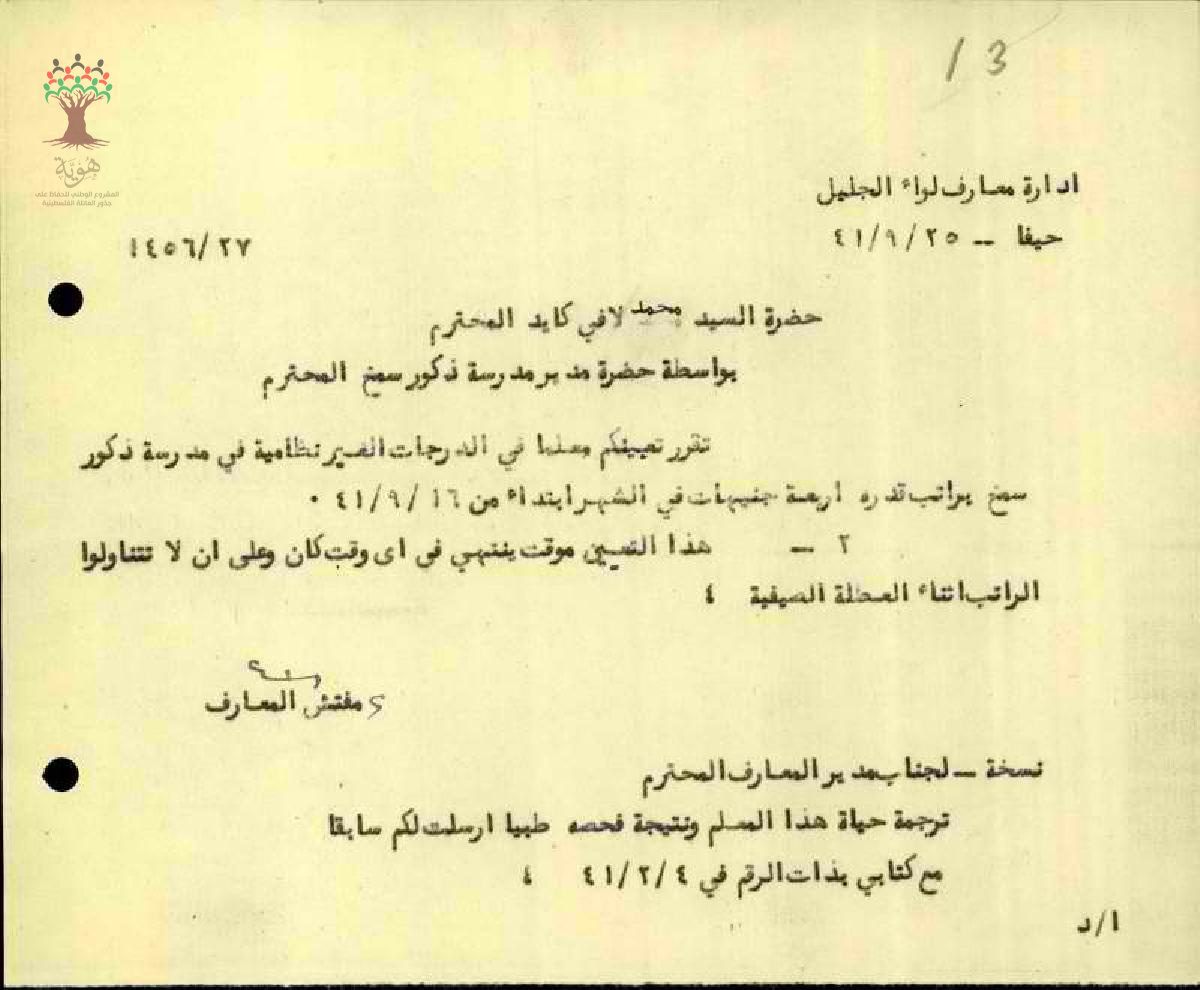 13
هُويَّة
المشروع الوطني للحفاظ على
جذور العائلة الفلسطينية
ادارة معارف لواء الجليل
حيفا – ٢٥ / ٩ / ٤١
٢٧ / ١٤٥٦
حضرة السيد محمد لافي كايد المحترم
بواسطة حضرة مدير مدرسة ذكور سمخ المحترم
تقرر تعيينكم معلما في الدرجات الغير نظامية في مدرسة ذكور
سمخ براتب قدره اربعة جنيهات في الشهر ابتداء من ١٦ / ٩ / ٤١ ٠
٢ – هذا التعيين موقت ينتهي في اى وقت كان وعلى ان لا تتناولوا
الراتب اثناء العطلة الصيفية ٤
مفتش المعارف
نسخة – لجناب مدير المعارف المحترم
ترجمة حياة هذا المعلم ونتيجة فحصه طبيا ارسلت لكم سابقا
مع كتابي بذات الرقم في ٤ / ٢ / ٤١ ٤
ا / د